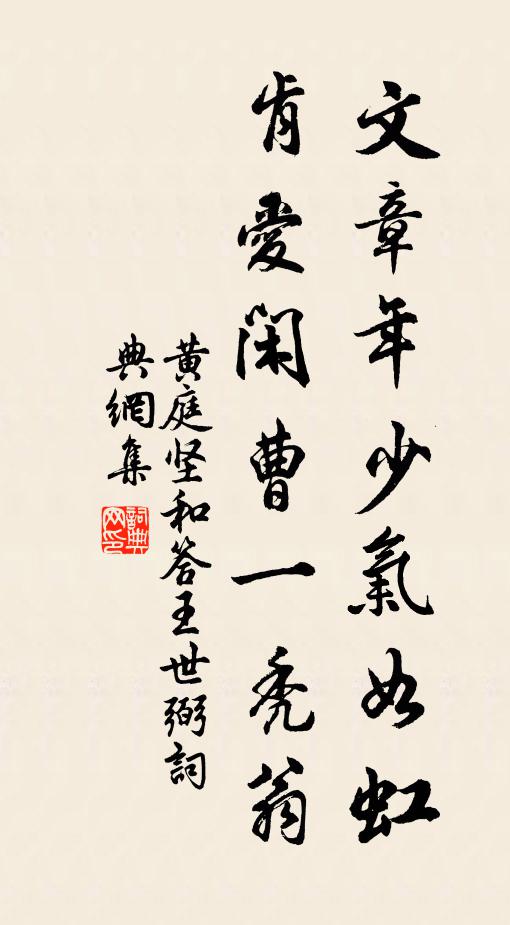 文章年少氣如虹
肯愛閑曹一禿翁
黄庭坚和答王世弼詞
典網集
詞典
网印